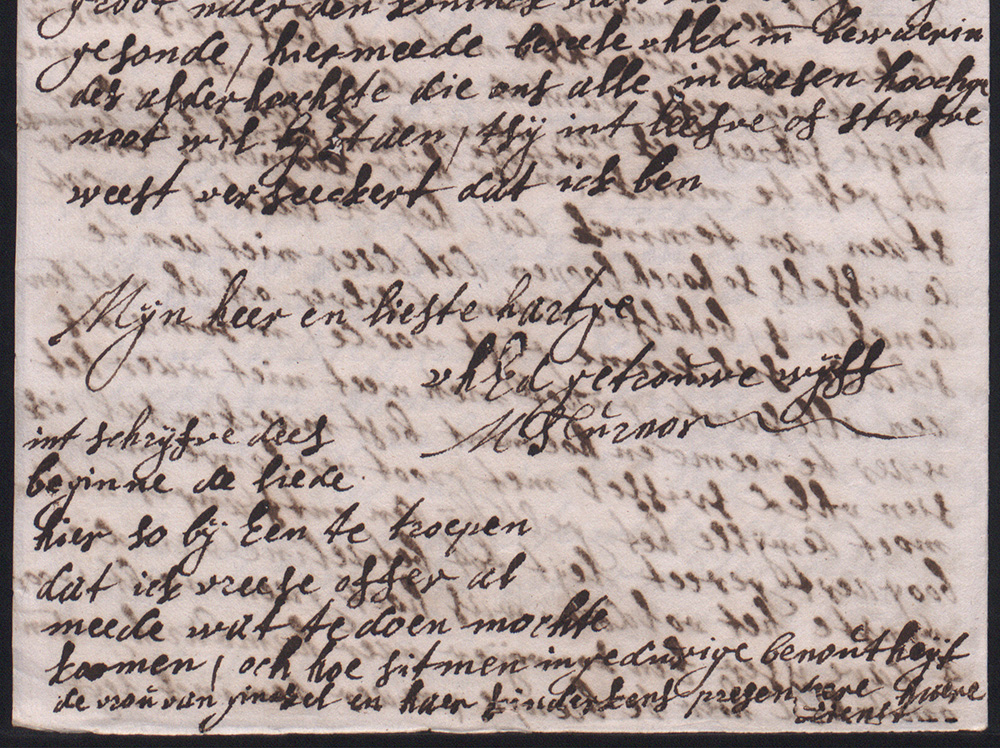 groot naer den koninck
gesonde / hiermeede beveele uhEd in bewaerin
des alderhoochste die ons alle in deesen hoochge
noot wil bij staen / tsij int leefve of sterfve
weest verseeckert dat ick ben
Mijn heer en liefste hartge
uhEd getrouwe wijff
M Turnor
int schrijfve dees
beginne de liede
hier so bij Een te troepen
dat ick vreese offer al
meede wat te doen mochte
koomen / och hoe sitmen in gedurige benoutheijt
de vrou van ginckel en haer kinderkens presenteere haere
dienst